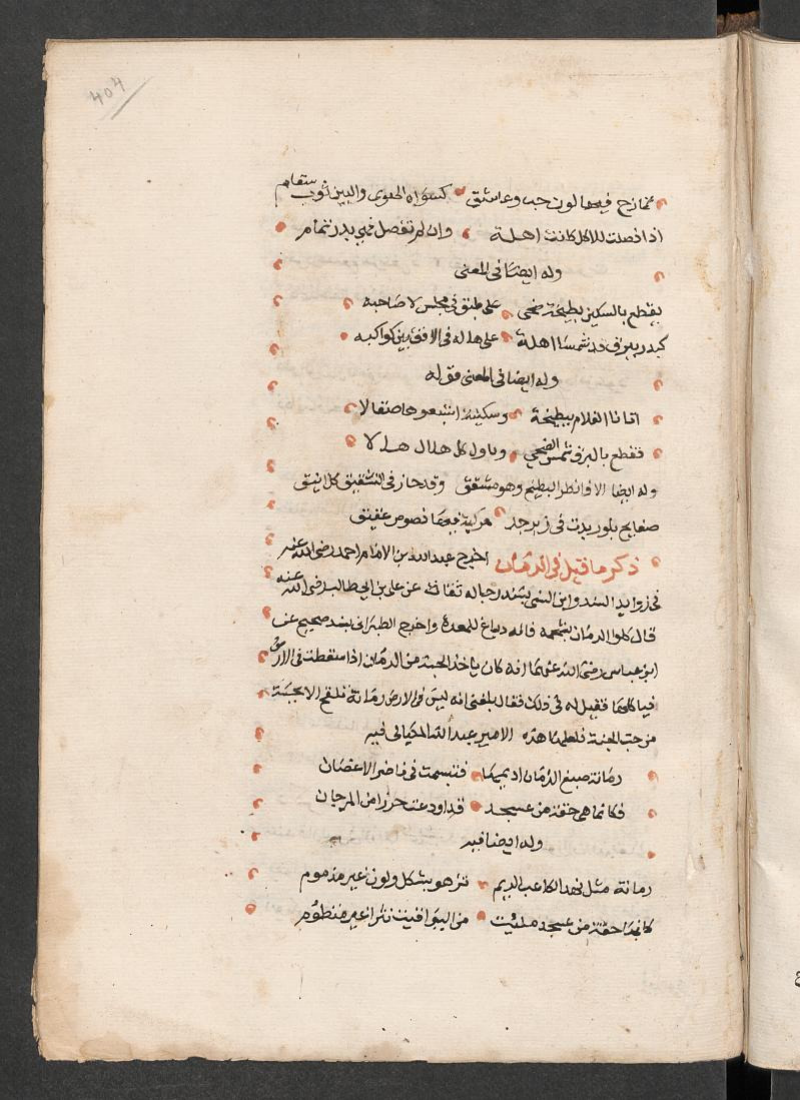 404
تمازج فيها لون حب وعاشق كسواه الهوى والبين ثوب سقام
اذا فصلت للاكل كانت اهلة وان لم تفصل فهي بدر تمام
وله ايضا في المعنى
يقطع بالسكين بطيخة ضحى على طبق في مجلس لا صاحبه
كبدر ببرق قد شمسا اهلة على هاله في الافق بين كواكبه
وله ايضا في المعنى قوله
اتانا الغلام ببطيخة وسكينة اشبعوها صقالا
فقطع بالبرق شمس الضحى وناول كل هلال هلالا
وله ايضا الا فانظر البطيخ وهو مشقق وقد حاز في التشقيق كل انيق
صفايح بلور بدت في زبرجد مركبة فيها فصوص عقيق
ذكر ما قيل في الرمان اخرج عبد الله بن الامام احمد رضي الله عنه
في زوايد المسند وابن السني بسند رجاله ثقات عن علي بن ابي طالب رضي الله عنه
قال كلوا الرمان بشحمه فانه دباغ للمعدة واخرج الطبراني بسند صحيح عن
ابن عباس رضي الله عنهما انه كان ياخذ الحبة من الرمان اذا سقطت في الارض
فياكلها فقيل له في ذلك فقال بلغني انه ليس في الارض رمانة تلقح الا بحبة
من حب الجنة فلعلها هذه الامير عبد الله الميكالي فيه
رمانة صبغ الزمان اديمها فتبسمت في ناضر الاغصان
فكانما هي حقة من عسجد قد اودعت خرزا من المرجان
وله ايضا فيه
رمانة مثل نهد الكاعب الريم تزهو بشكل ولون غير مذموم
كانها حقة من عسجد ملئت من اليواقيت نثرا غير منظوم